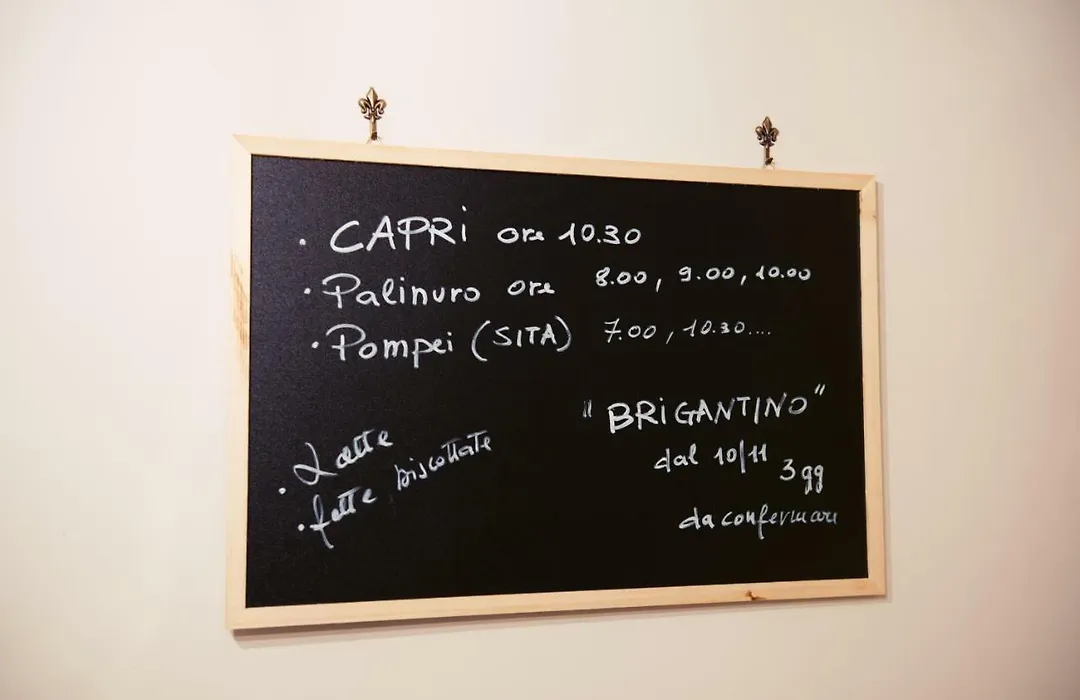 • CAPRi ore 10.30
• Palinuro ore 8.00, 9.00, 10.00
• Pompei (SITA) 7.00, 10.30....
• Latte
• fette biscottate
"BRiGANTINO"
dal 10/11 3 gg
da confermare